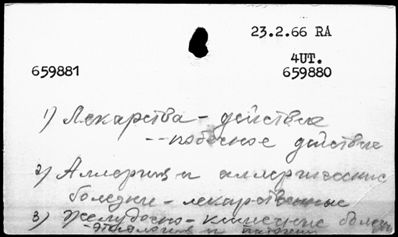 23.2.66 RA
4UT.
659881 659880
1) Лекарства - действие
-- побочное действие
2) Аллергия и аллергические
болезни - лекарственные
3) Желудочно - кишечные болезни
- этиология и патоген